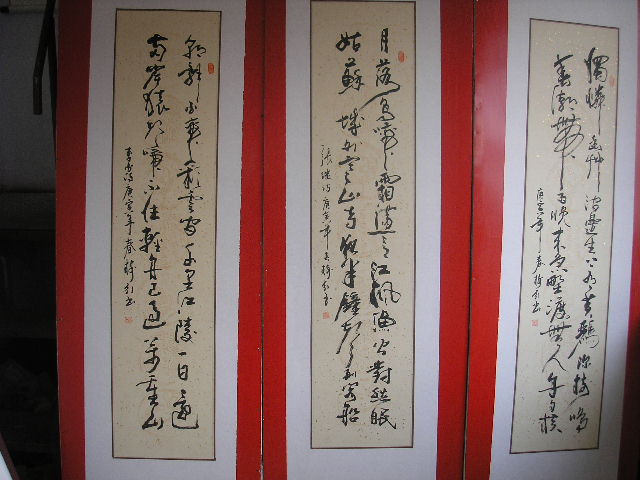 獨憐幽艸澗邊生上有黃鸝深樹鳴
春潮帶雨晚來急野渡無人舟自橫
庚寅年春書
月落烏啼霜滿天江楓漁火對愁眠
姑蘇城外寒山寺夜半鐘聲到客船
張继詩庚寅年春書
朝辭白帝彩雲間千里江陵一日還
兩岸猿聲啼不住輕舟已過萬重山
李白詩庚寅年春書